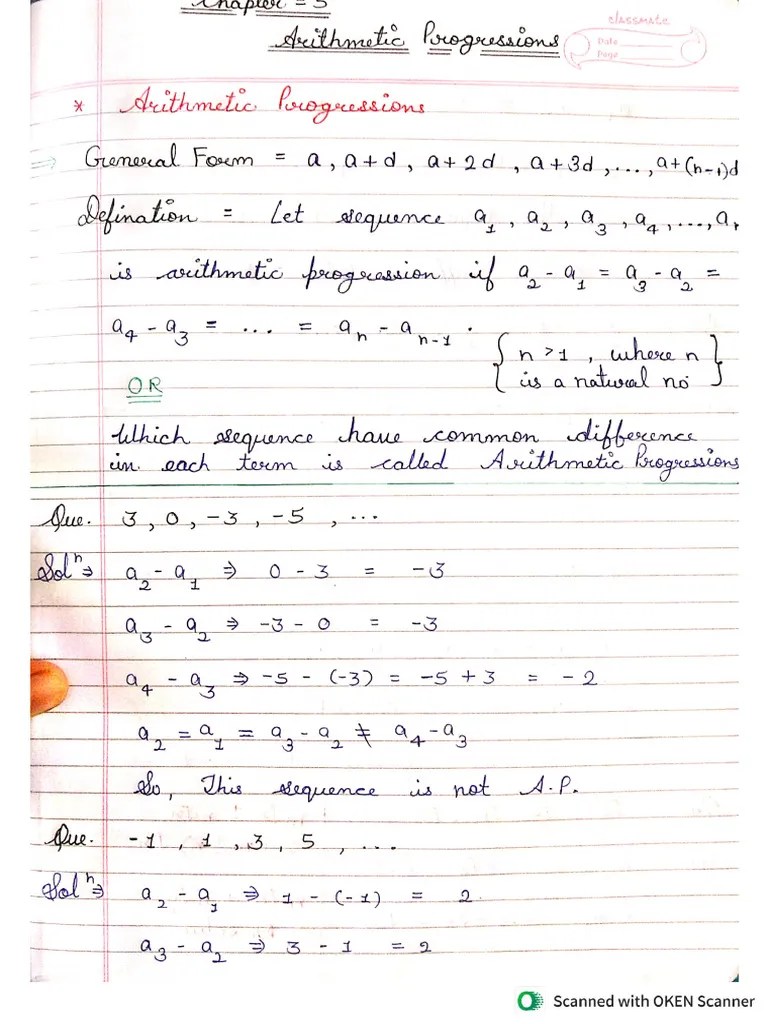 Chapter = 5
Arithmetic Progressions
classmate
Date
Page
* Arithmetic Progressions
⇒ General Form = a, a+d, a+2d, a+3d, ..., a+(n-1)d
Defination = Let sequence a₁, a₂, a₃, a₄, ..., aₙ
is arithmetic progression if a₂ - a₁ = a₃ - a₂ =
a₄ - a₃ = ... = aₙ - aₙ₋₁ .
{ n >1, where n }
{ is a natural no }
OR
Which sequence have common difference
in each term is called Arithmetic Progressions
Que. 3, 0, -3, -5, ...
Solⁿ⇒ a₂ - a₁ ⇒ 0 - 3 = -3
a₃ - a₂ ⇒ -3 - 0 = -3
a₄ - a₃ ⇒ -5 - (-3) = -5 + 3 = -2
a₂ = a₁ = a₃ - a₂ ≠ a₄ - a₃
So, This sequence is not A.P.
Que. -1, 1, 3, 5, ...
Solⁿ⇒ a₂ - a₁ ⇒ 1 - (-1) = 2
a₃ - a₂ ⇒ 3 - 1 = 2
Scanned with OKEN Scanner